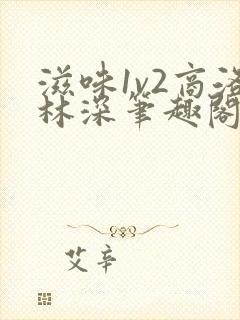 滋味1v2高洛
林深笔趣阁
艾辛